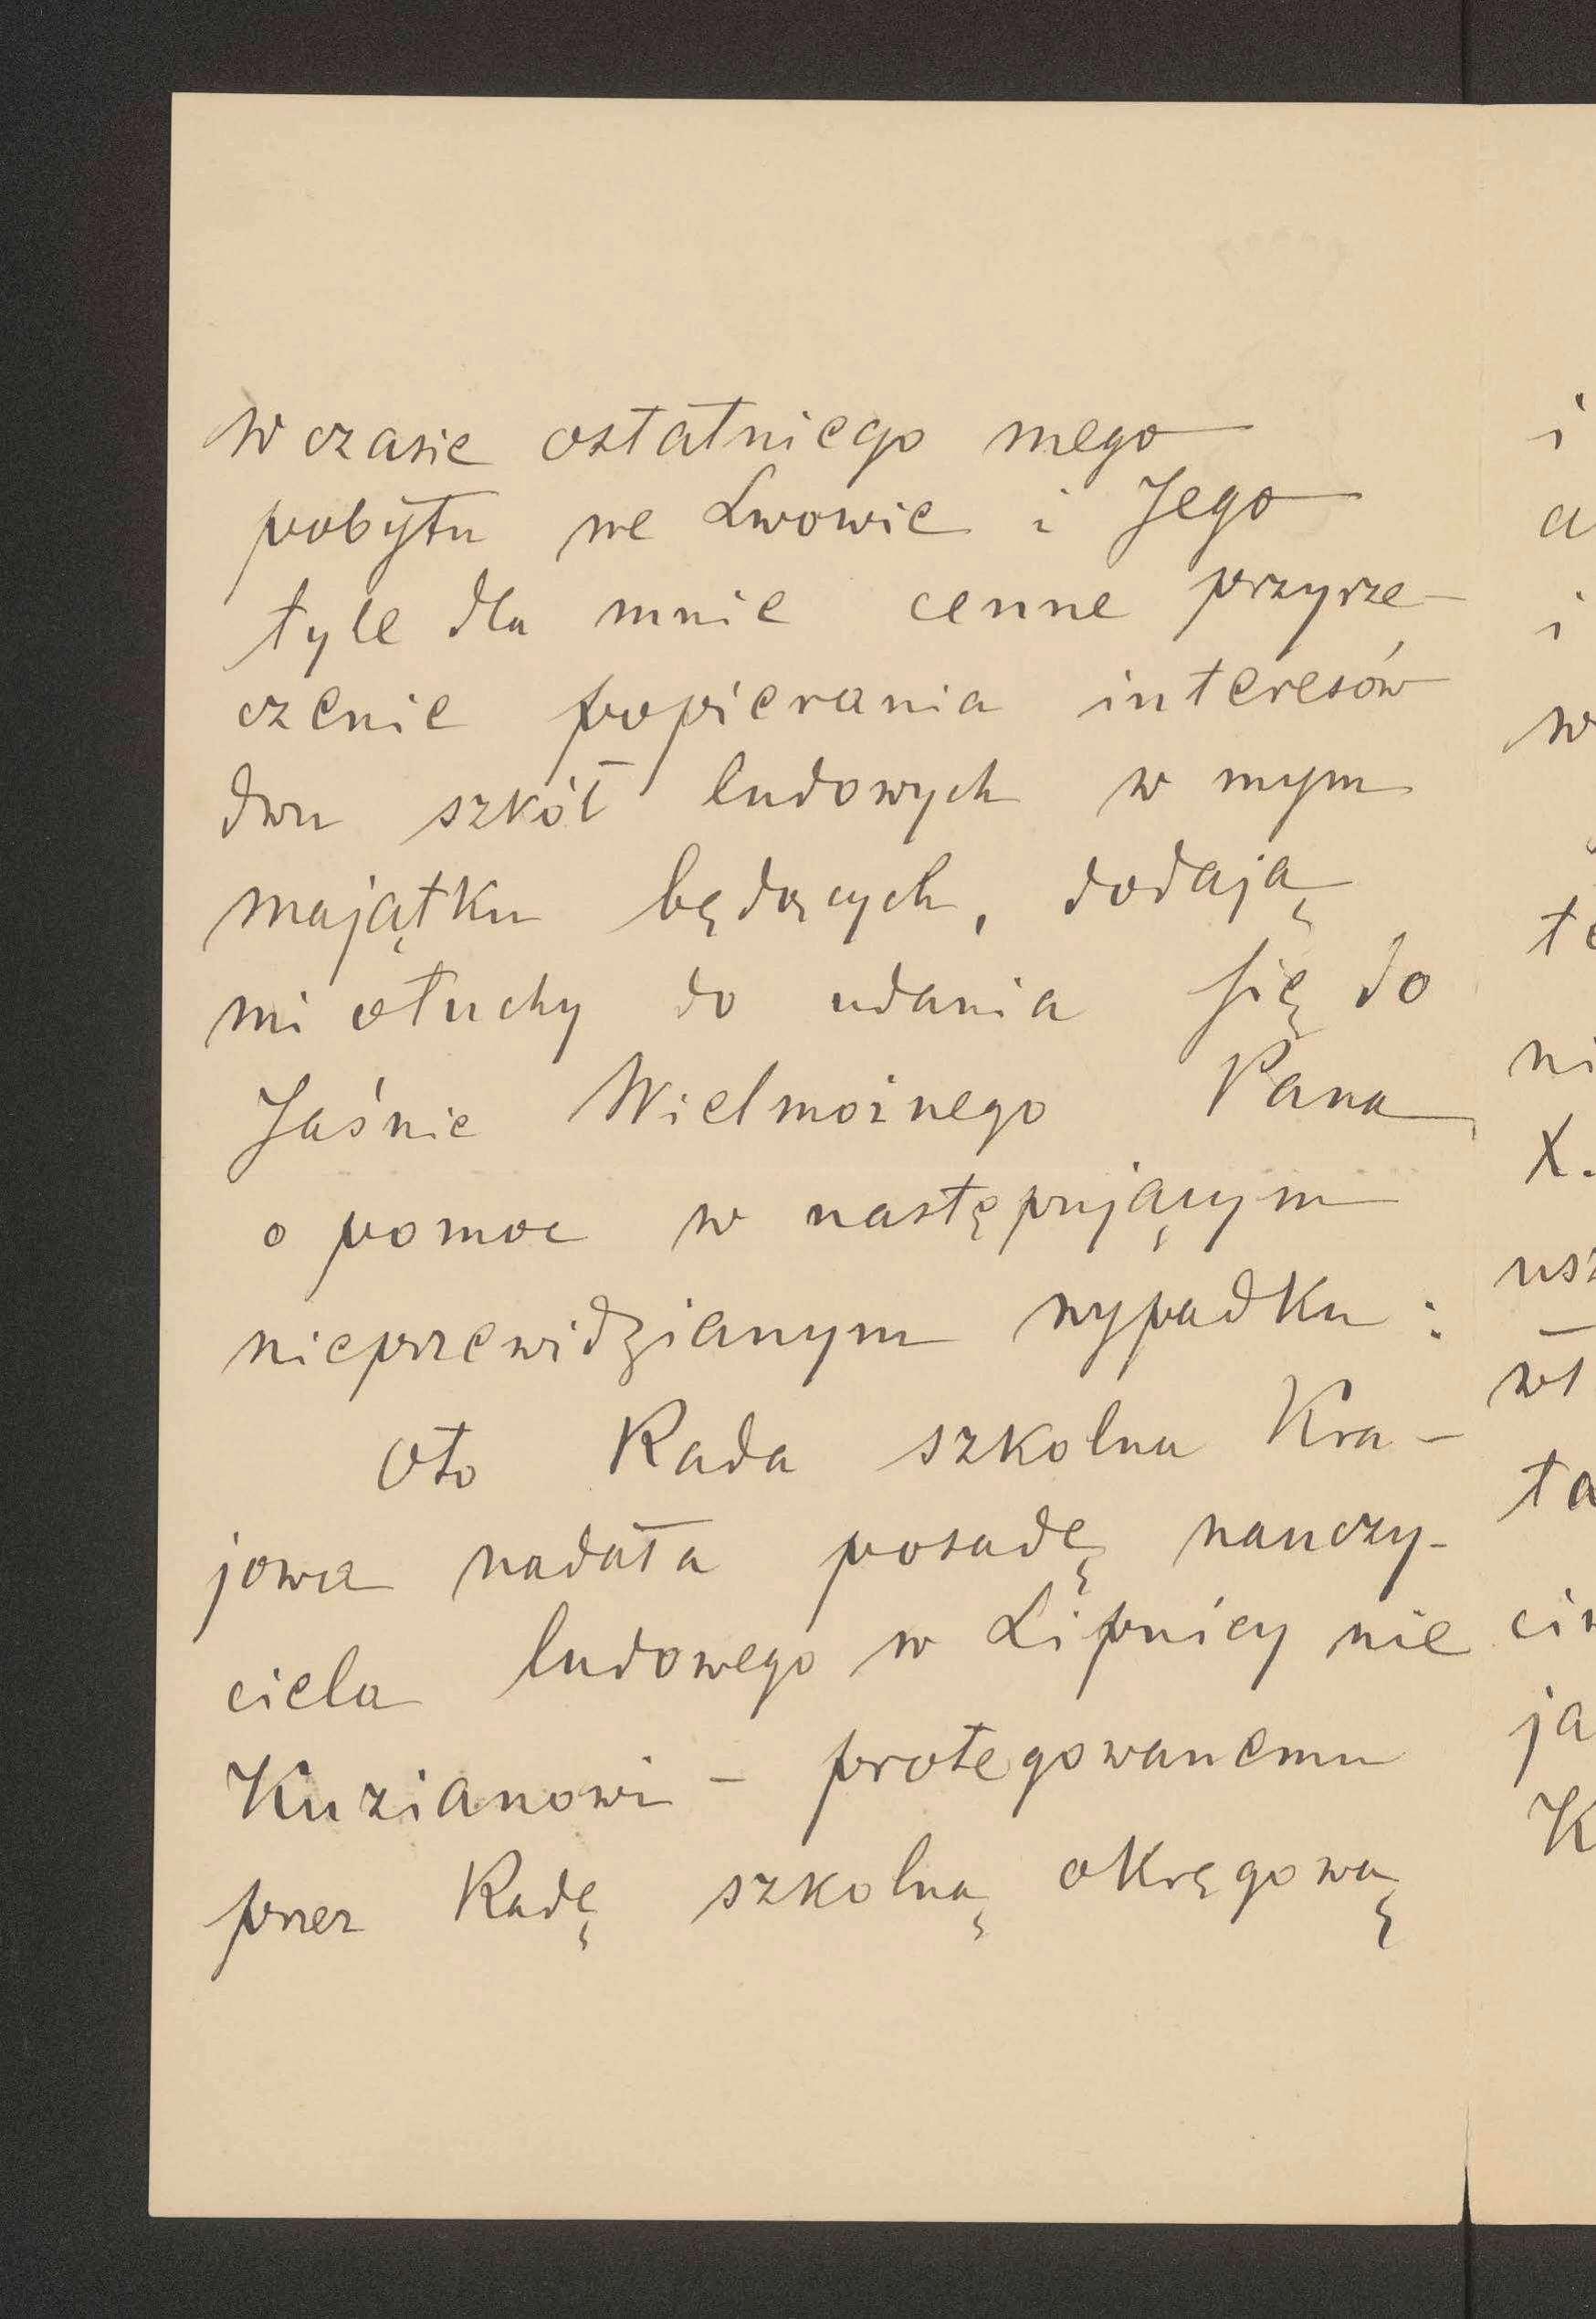 w czasie ostatniego mego
pobytu we Lwowie i Jego
tyle dla mnie cenne przyrze-
czenie popierania interesów
dwu szkół ludowych w mym
majątku będących, dodają
mi otuchy do udania się do
Jaśnie Wielmożnego Pana
o pomoc w następującym
nieprzewidzianym wypadku:
Oto Rada szkolna Kra-
jowa nadała posadę nauczy-
ciela ludowego w Lipnicy nie
Kuzianowi - protegowanemu
przez Radę szkolną okręgową